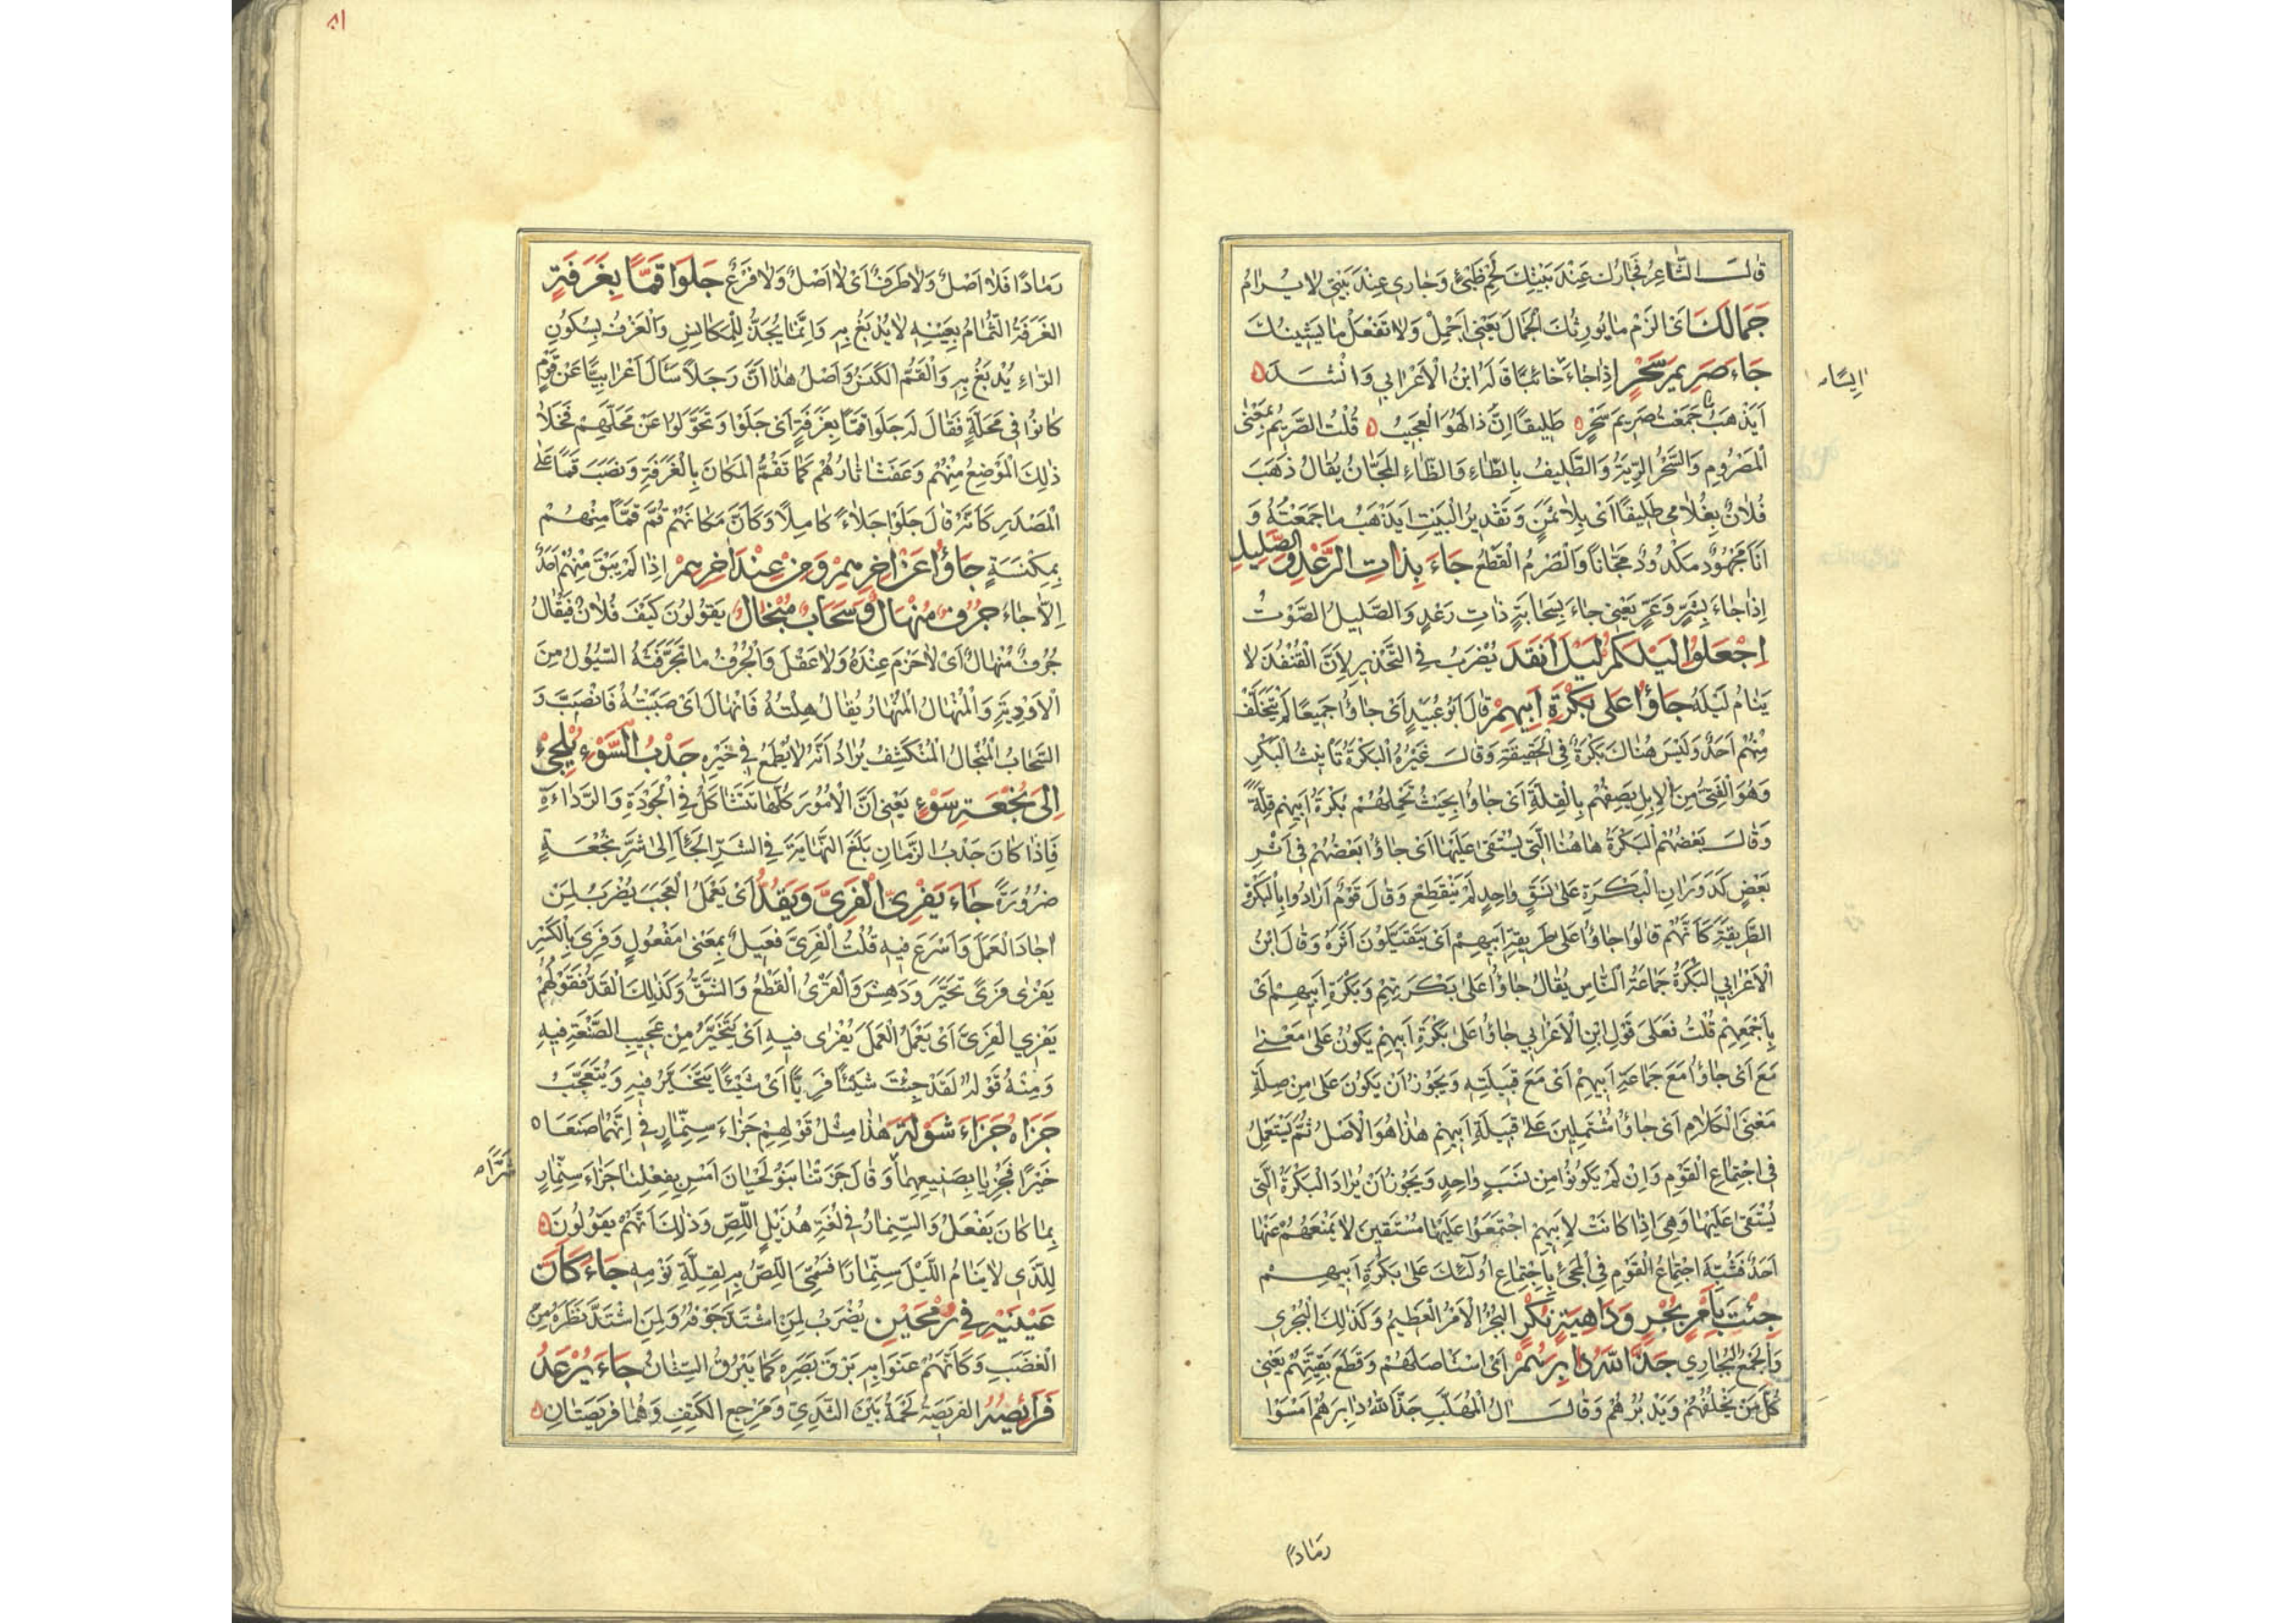 قال الشاعر فجارك عند بيتك لحم ظبي وجاري عند بيتي لا يرام
جَمَالَكَ اى الزم ما يورثك الجمال يعنى اجمل ولا تفعل ما يشينك
جَاءَ صَرِيمَ سَحْرٍ اذا جاء خائبا قاله ابن الاعرابي وانشد
ايسا
ايذهب ما جمعت صريم سحر طليفا ان ذا لهو العجيب قلت الصريم بمعنى
المصروم والسحر الرية والطليف بالطاء والظاء المجان يقال ذهب
فلان بغلامى طليفا اى بلا ثمن وتقدير البيت ايذهب ما جمعته و
انا مجهود مكدود مجانا والصرم القطع جَاءَ بِذَاتِ الرَّعْدِ وَالصَّلِيلِ
اذا جاء بشر وعر يعنى جاء بسحابة ذات رعد والصليل الصوت
اِجْعَلُوا لَيْلَكُمْ لَيْلَ اَنْقَدَ يضرب في التحذير لان القنفذ لا
ينام ليله جَاؤُا عَلى بَكْرَةِ اَبِيهِمْ قال ابو عبيد اى جاؤا جميعا لم يتخلف
منهم احد وليس هناك بكرة في الحقيقة وقال غيره البكرة تانيث البكر
وهو الفتى من الابل يصفهم بالقلة اى جاؤا بحيث تحملهم بكرة ابيهم قلة
وقال بعضهم البكرة هاهنا التى يستقى عليها اى جاؤا بعضهم في اثر
بعض كدوران البكرة على نسق واحد لم ينقطع وقال قوم ارادوا بالبكرة
الطريقة كانهم قالوا جاؤا على طريقة ابيهم اى يتقيلون اثره وقال ابن
الاعرابي البكرة جماعة الناس يقال جاؤا على بكرتهم وبكرة ابيهم اى
باجمعهم قلت فعلى قول ابن الاعرابي جاؤا على بكرة ابيهم يكون على معنى
مع اى جاؤا مع جماعة ابيهم اى مع قبيلته ويجوز ان يكون على من صلة
معنى الكلام اى جاؤا مشتملين على قبيلة ابيهم هذا هو الاصل ثم يستعمل
في اجتماع القوم وان لم يكونوا من نسب واحد ويجوز ان يراد البكرة التى
يستقى عليها وهى اذا كانت لابيهم اجتمعوا عليها مستقين لا يمنعهم عنها
احد فشبه اجتماع القوم في المجئ باجتماع اولئك على بكرة ابيهم
جِئْتَ بِاَمْرٍ بُجْرٍ وَدَاهِيَةٍ نُكْرٍ البجر الامر العظيم وكذلك البجرى
والجمع البجاري جَذَّ اللهُ دَابِرَهُمْ اى استاصلهم وقطع بقيتهم يعنى
كل من يخلفهم ويدبرهم وقال المهلب جذ الله دابرهم امسوا
رمادا
رمادا فلا اصل ولا طرف اى لا اصل ولا فرع جَلَوْا قَمًّا بِغَرْفَةٍ
الغرفة الثمام بعينه لا يدبغ به وانما يجد للمكانس والغرف بسكون
الراء يدبغ به والقم الكنس واصل هذا ان رجلا سأل اعرابيا عن قوم
كانوا في محلة فقال له جلوا قما بغرفة اى جلوا وتحولوا عن محلتهم فخلا
ذلك الموضع منهم وعفت اثارهم كما تقم المكان بالغرفة ونصب قما على
المصدر كانه قال جلوا جلاء كاملا وكان مكانهم قم قما منهم
بمكنسة جَاؤُا عَنْ اٰخِرِهِمْ وَمِنْ عِنْدِ اٰخِرِهِمْ اذا لم يبق منهم احد
الا جاء جُرُفٌ مُنْهَالٌ وَسَحَابٌ مُنْجَالٌ يقولون كيف فلان فيقال
جرف منهال اى لا حزم عنده ولا عقل والجرف ما تجرفته السيول من
الاودية والمنهال المنهار يقال هلته فانهال اى صببته فانصب و
السحاب المنجال المنكشف يراد انه لا يطمع في خيره جَذْبُ السَّوْءِ يُلْجِئُ
اِلى نُجْعَةِ سَوْءٍ يعنى ان الامور كلها تتشاكل في الجودة والرداءة
فاذا كان جدب الزمان بلغ النهاية في الشر الجأ الى شر نجعة
ضرورة جَاءَ يَفْرِى الْفَرِىَّ وَيَقُدُّ اى يعمل العجب يضرب لمن
اجاد العمل واسرع فيه قلت الفرى فعيل بمعنى مفعول وفرى بالكسر
يفرى فرى تحير ودهش والفرى القطع والشق وكذلك القد فقولهم
يفري الفرى اى يعمل العمل يفرى فيه اى يتحير من عجيب الصنعة فيه
ومنه قوله لقد جئت شيئا فريا اى شيئا يتحير فيه ويتعجب
جَزَاهُ جَزَاءَ شَوْلَةَ هذا مثل قولهم جزاء سنمار في انهما صنعا
خيرا فجزيا بصنيعهما وقال جزتنا بنو لحيان امس بفعلنا جزاء سنمار
شرا
بما كان يفعل والسنمار في لغة هذيل اللص وذلك انهم يقولون
للذى لا ينام الليل سنمارا فسمى اللص به لقلة نومه جَاءَ كَاَنَّ
عَيْنَيْهِ فِي رُمْحَيْنِ يضرب لمن اشتد خوفه ولمن اشتد نظره من
الغضب وكانهم عنوا به برق بصره كما يبرق السنان جَاءَ يُرْعَدُ
فَرَائِصُهُ الفريصة لحمة بين الثدي ومرجع الكتف وهما فريصتان